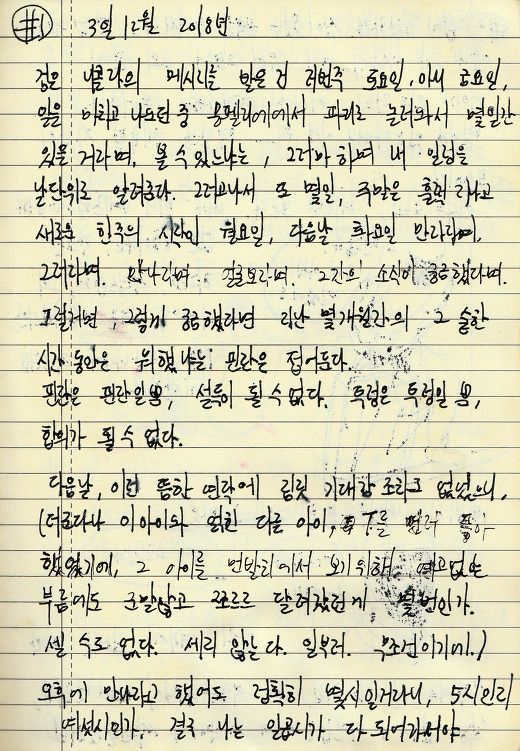 #1 3일 12월 2018년
검은 니콜라의 메시지를 받은 건 저번주 토요일. 아니 금요일,
일을 마치고 나오던 중 몽펠리에에서 파리로 놀러와서 몇일간
있을 거라며. 볼 수 있느냐는, 그러마 하며 내 일정을
날단위로 알려준다. 그러고나서 또 몇일, 주말은 훌쩍 지나고
새로운 한주의 시작인 월요일, 다음날 화요일 만나자며,
그러자며. 만나자며. 얼굴보자며. 그간의 소식이 궁금했다며.
그럴거면, 그렇게 궁금했다면 지난 몇개월간의 그 숱한
시간 동안은 뭐했냐는 핀잔은 접어둔다.
핀잔은 핀잔일 뿐, 설득이 될 수 없다. 투정은 투정일 뿐,
합의가 될 수 없다.
다음날, 이런 뜸한 연락에 짐짓 기대감 조차도 없었으니,
(더군다나 이 아이와 얽힌 다른 아이, T를 좋아
했었기에, 그 아이를 먼발치에서 보기위해, 예고없는
부름에도 군말않고 쪼르르 달려갔던게 몇 번인가.
셀 수도 없다. 세지 않는다. 일부러. 무조건이기에.)
오후에 만나자고 했어도 정확히 몇시일거라니, 5시인지
여섯시인가. 결국 나는 일곱시가 다 되어가서야